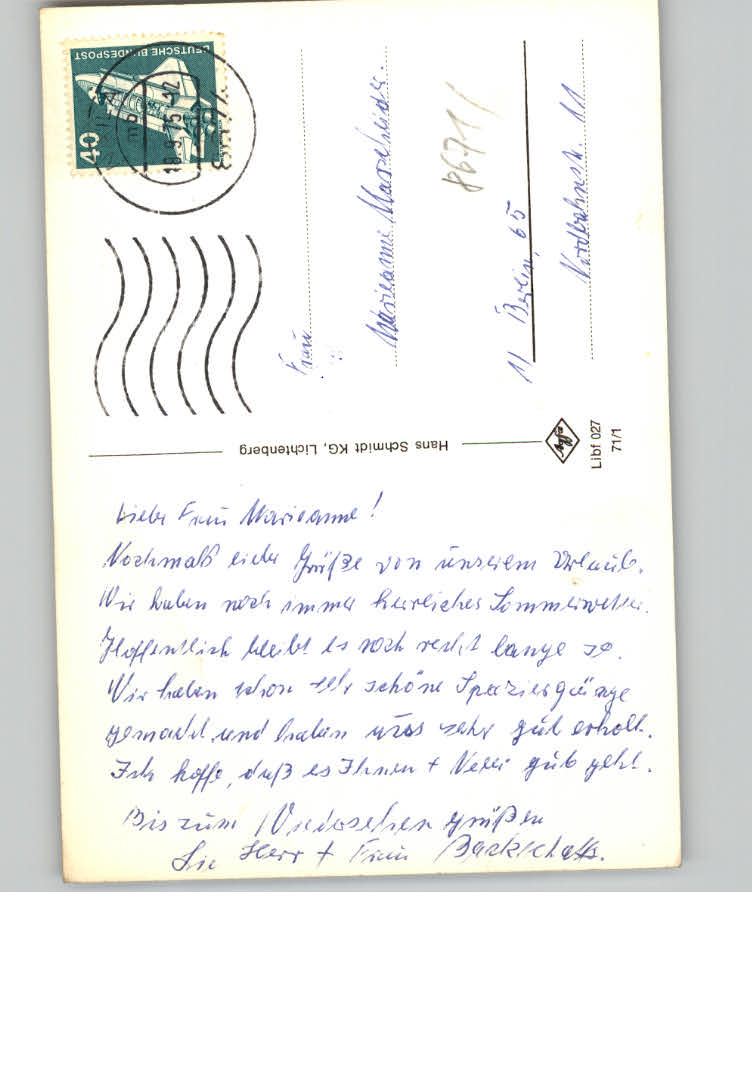 DEUTSCHE BUNDESPOST
40
18.9.75-12
Frau
Marianne
8671/
1/ Berlin, 65
Nordbahnstr. 11
Hans Schmidt KG, Lichtenberg
Agfa
Libf 027
71/1
Liebe Frau Marianne!
Nochmals Grüße von unserem Urlaub.
Wir haben noch immer herrliches Sommerwetter.
Hoffentlich bleibt es noch recht lange so.
Wir haben schon sehr schöne Spaziergänge
gemacht, und haben uns sehr gut erholt.
Ich hoffe, daß es Ihnen + gut geht.
Bis zum Wiedersehen grüßen
Sie Herr + Frau